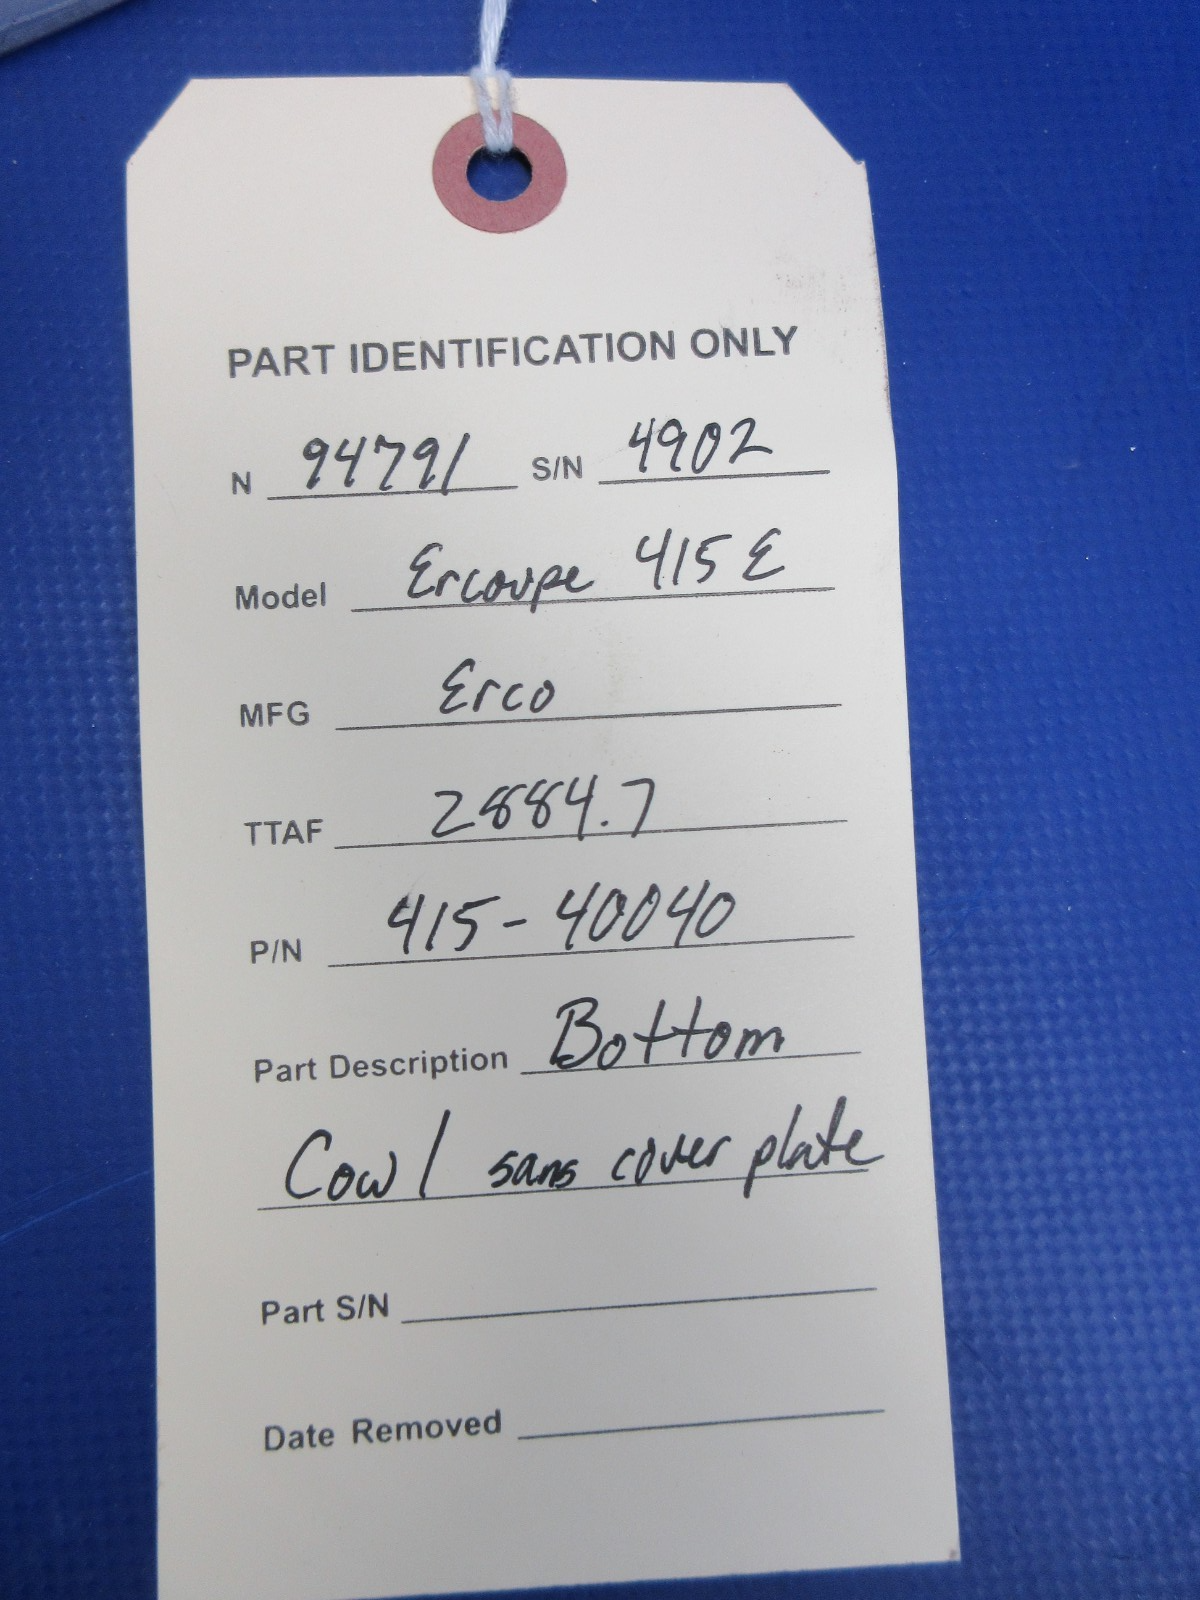 PART IDENTIFICATION ONLY
N 94791 S/N 4902
Model Ercoupe 415 E
MFG Erco
TTAF 2884.7
P/N 415-40040
Part Description Bottom
Cowl sans cover plate
Part S/N
Date Removed